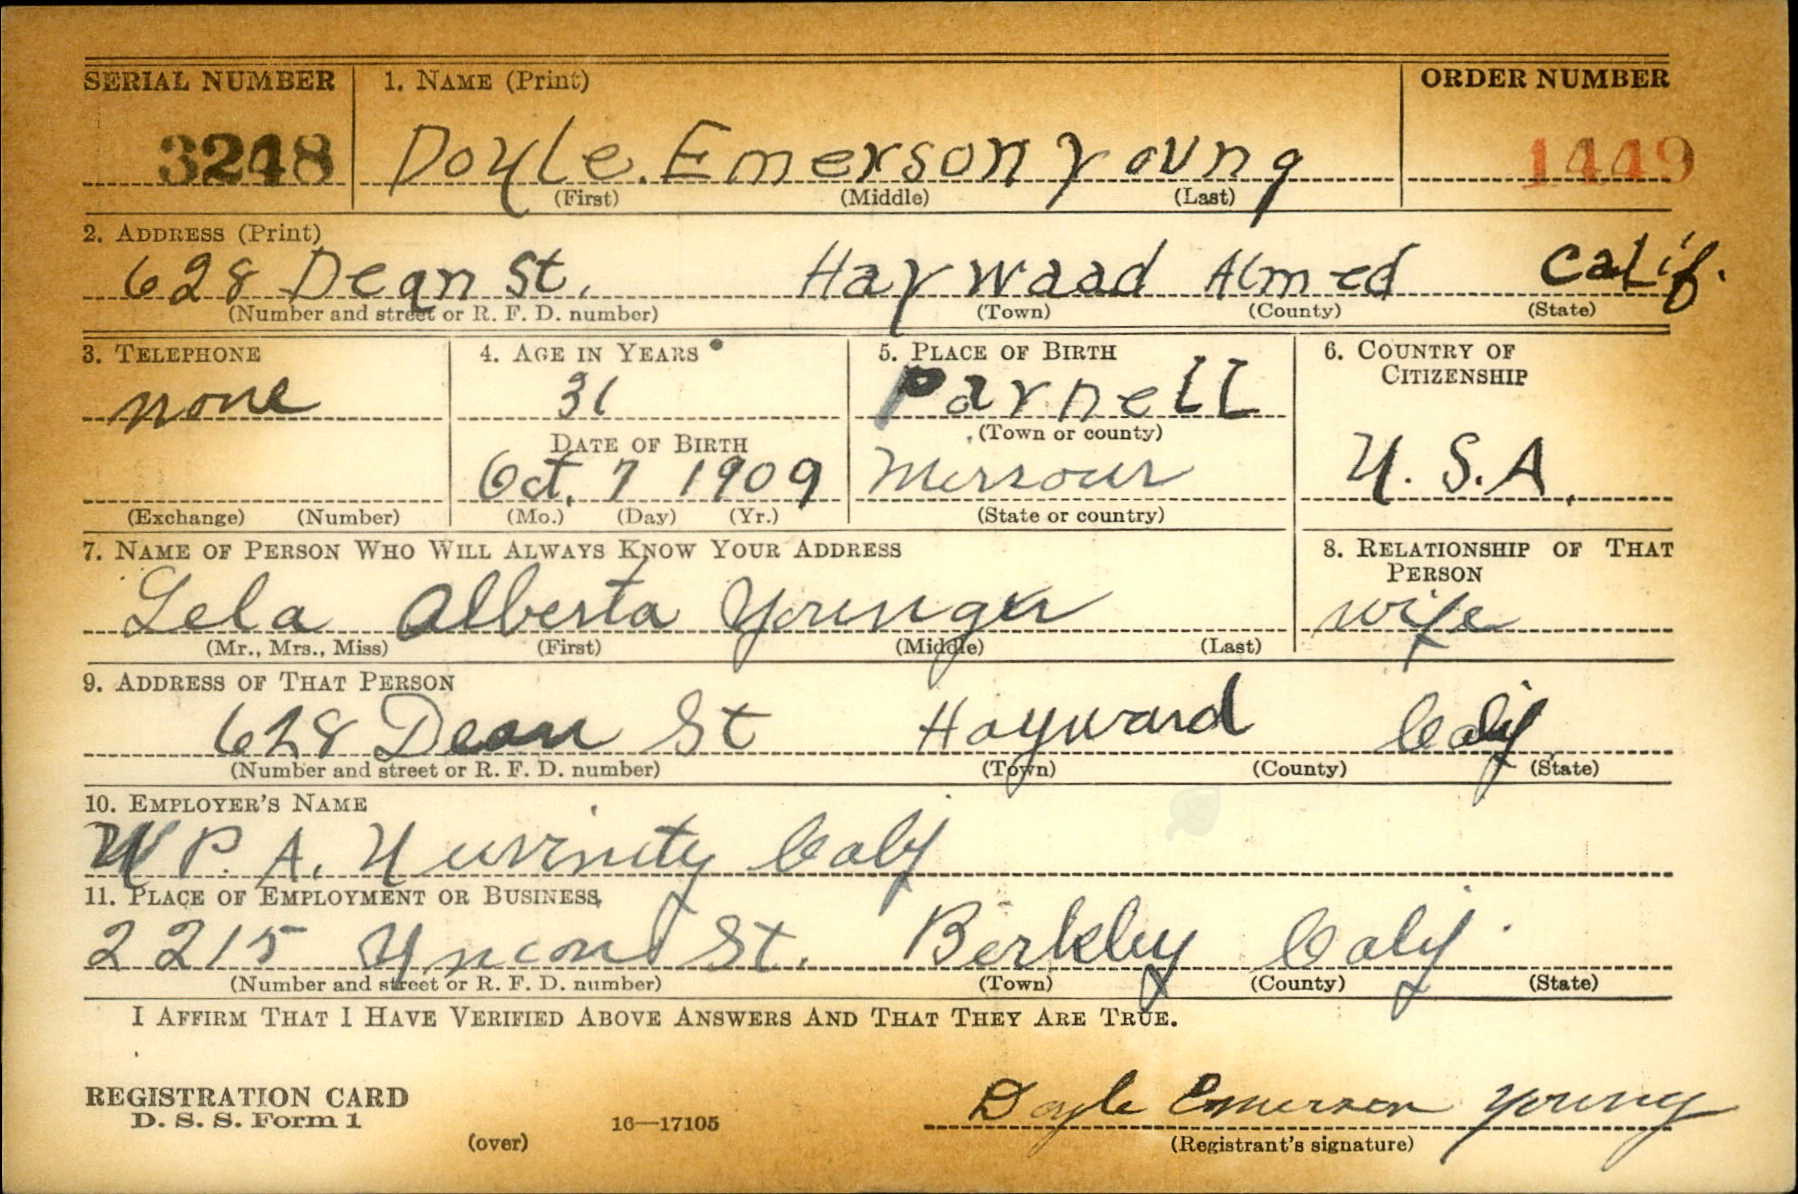 SERIAL NUMBER 1. NAME (Print) ORDER NUMBER
3248 Doyle. Emerson Young 1449
(First) (Middle) (Last)
2. ADDRESS (Print)
628 Dean St. Haywaad Almed Calif.
(Number and street or R. F. D. number) (Town) (County) (State)
3. TELEPHONE 4. AGE IN YEARS 5. PLACE OF BIRTH 6. COUNTRY OF
CITIZENSHIP
none 31 Parnell
(Town or county)
DATE OF BIRTH
Oct. 7 1909 Missour U. S. A.
(Exchange) (Number) (Mo.) (Day) (Yr.) (State or country)
7. NAME OF PERSON WHO WILL ALWAYS KNOW YOUR ADDRESS 8. RELATIONSHIP OF THAT
PERSON
Lela Alberta wife
(Mr., Mrs., Miss) (First) (Middle) (Last)
9. ADDRESS OF THAT PERSON
628 Dean St Hayward Calif
(Number and street or R. F. D. number) (Town) (County) (State)
10. EMPLOYER'S NAME
W P. A. Calif
11. PLACE OF EMPLOYMENT OR BUSINESS
2215 St. Berkley Calif.
(Number and street or R. F. D. number) (Town) (County) (State)
I AFFIRM THAT I HAVE VERIFIED ABOVE ANSWERS AND THAT THEY ARE TRUE.
REGISTRATION CARD
D. S. S. Form 1
(over) 16—17105
Doyle Emerson Young
(Registrant's signature)